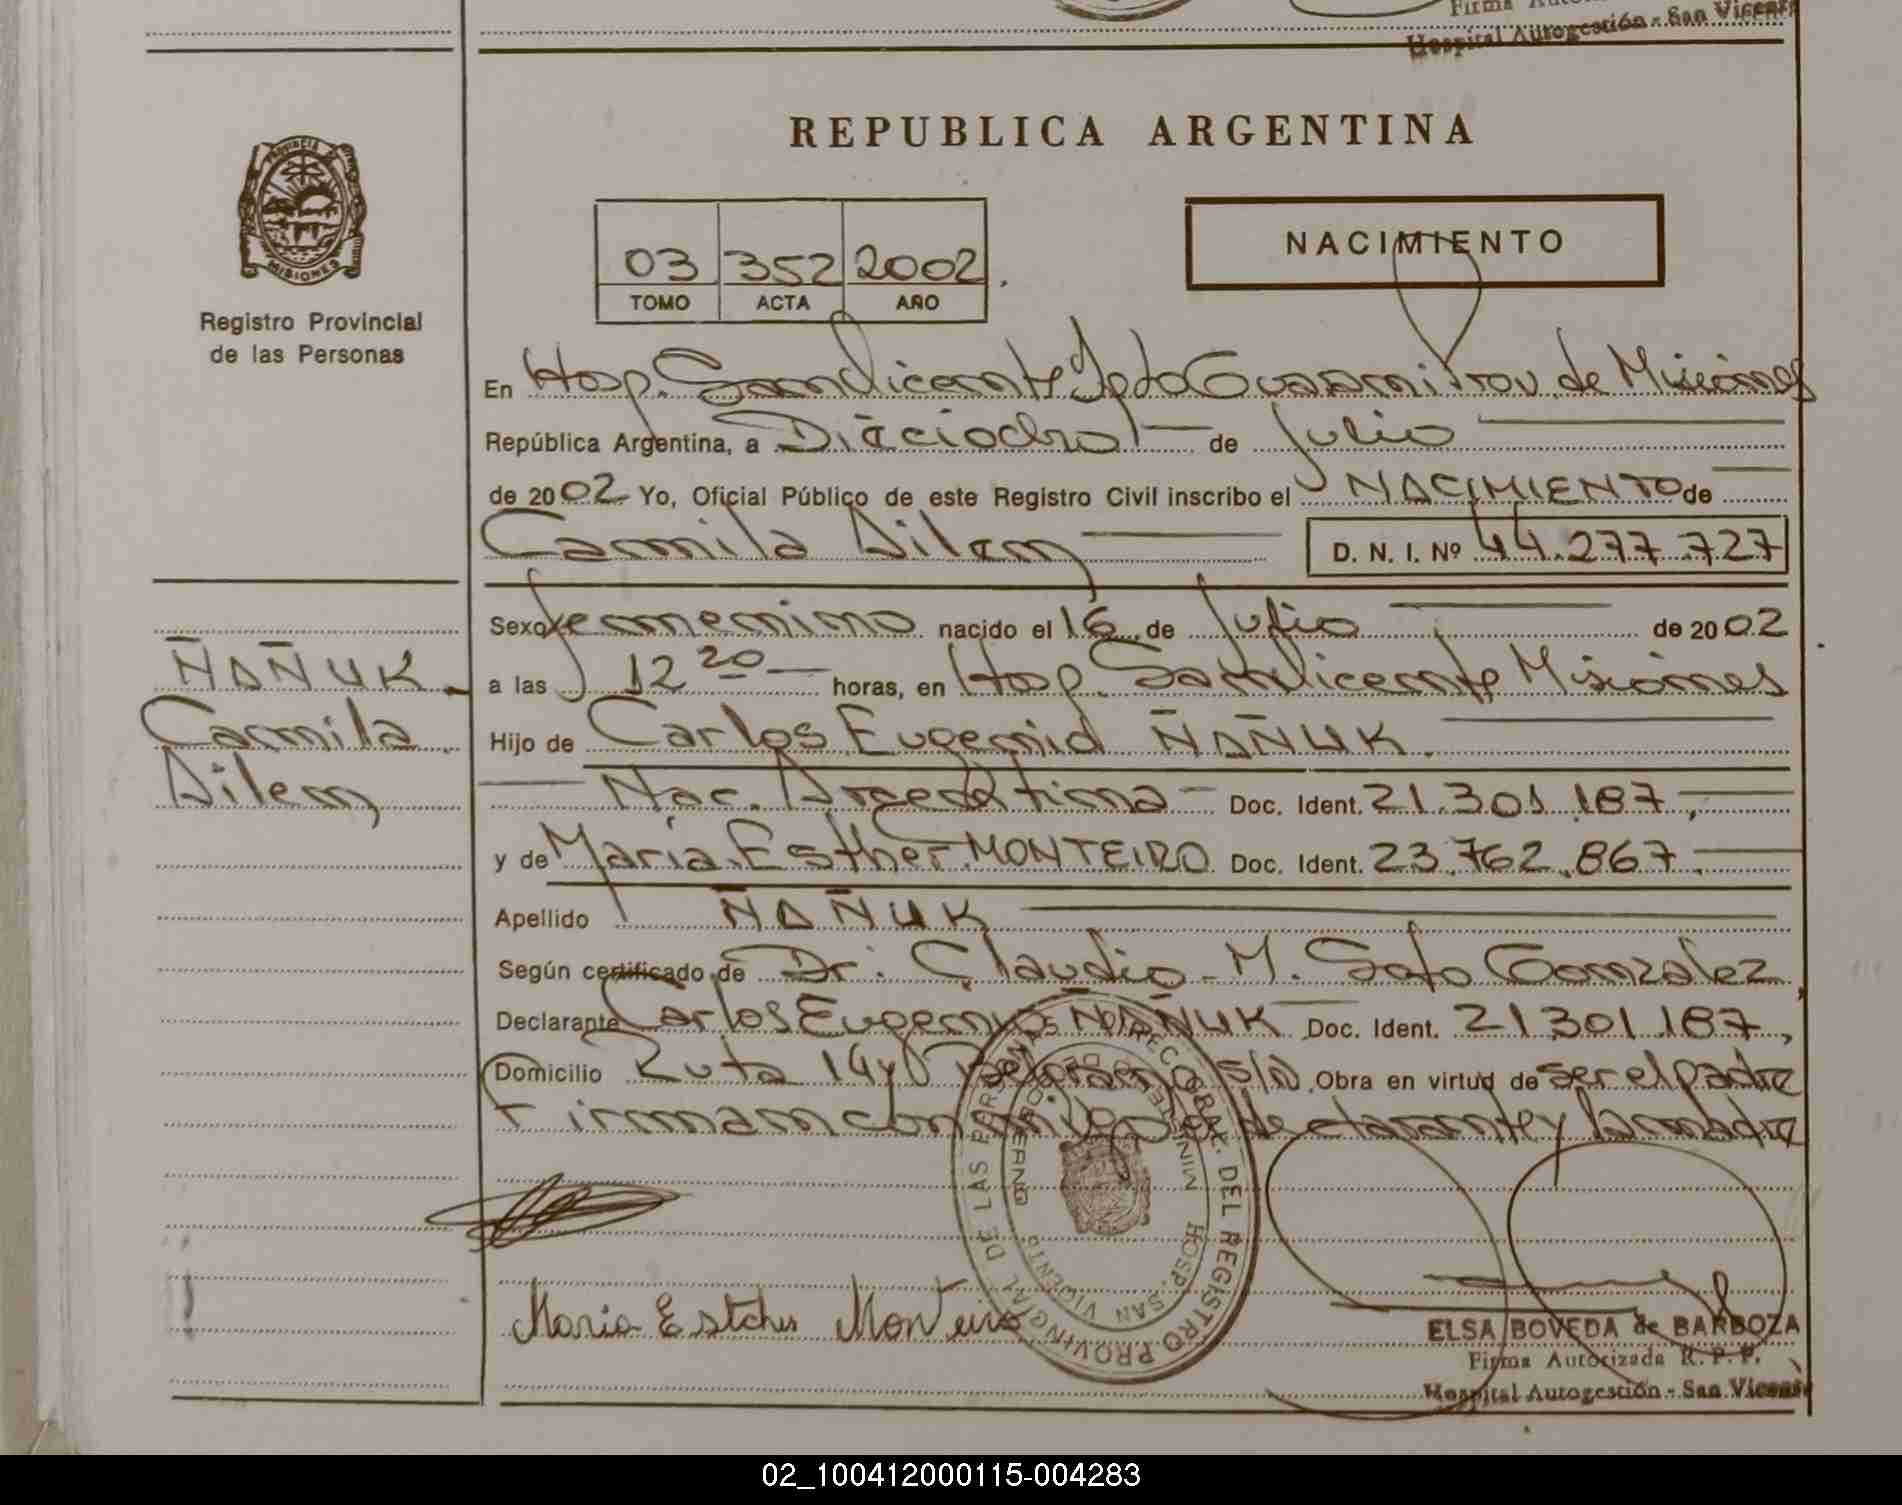 Firma
Hospital Autogestión - San Vicente
PROVINCIA DE
MISIONES
Registro Provincial
de las Personas
REPUBLICA ARGENTINA
03 352 2002
TOMO ACTA AÑO
NACIMIENTO
En Hosp. San Vicente Dpto Guarani Prov. de Misiones
República Argentina, a Dieciocho de Julio
de 2002 Yo, Oficial Público de este Registro Civil inscribo el NACIMIENTO de
Camila Ailen D. N. I. Nº 44.277.727
Sexo femenino nacido el 16 de Julio de 2002
a las 12 20 horas, en Hosp. San Vicente Misiones
Hijo de Carlos Eugenio ÑAÑUK
Nac. Argentina Doc. Ident. 21.301.187,
y de Maria Esther MONTEIRO Doc. Ident. 23.762.867.
Apellido ÑAÑUK
Según certificado de Dr. Claudio M. Soto Gonzalez,
Declarante Carlos Eugenio ÑAÑUK Doc. Ident. 21.301.187,
Domicilio Ruta 14 y s/n Obra en virtud de ser el padre
Firman conmigo el declarante y la madre
ÑAÑUK
Camila
Ailen
Maria Esther Monteiro
DIREC. GRAL. DEL REGISTRO PROVINCIAL DE LAS PERSONAS
MINISTERIO DE GOBIERNO
HOSP. SAN VICENTE
ELSA BOVEDA de BARBOZA
Firma Autorizada R. P. P.
Hospital Autogestión - San Vicente
02_100412000115-004283